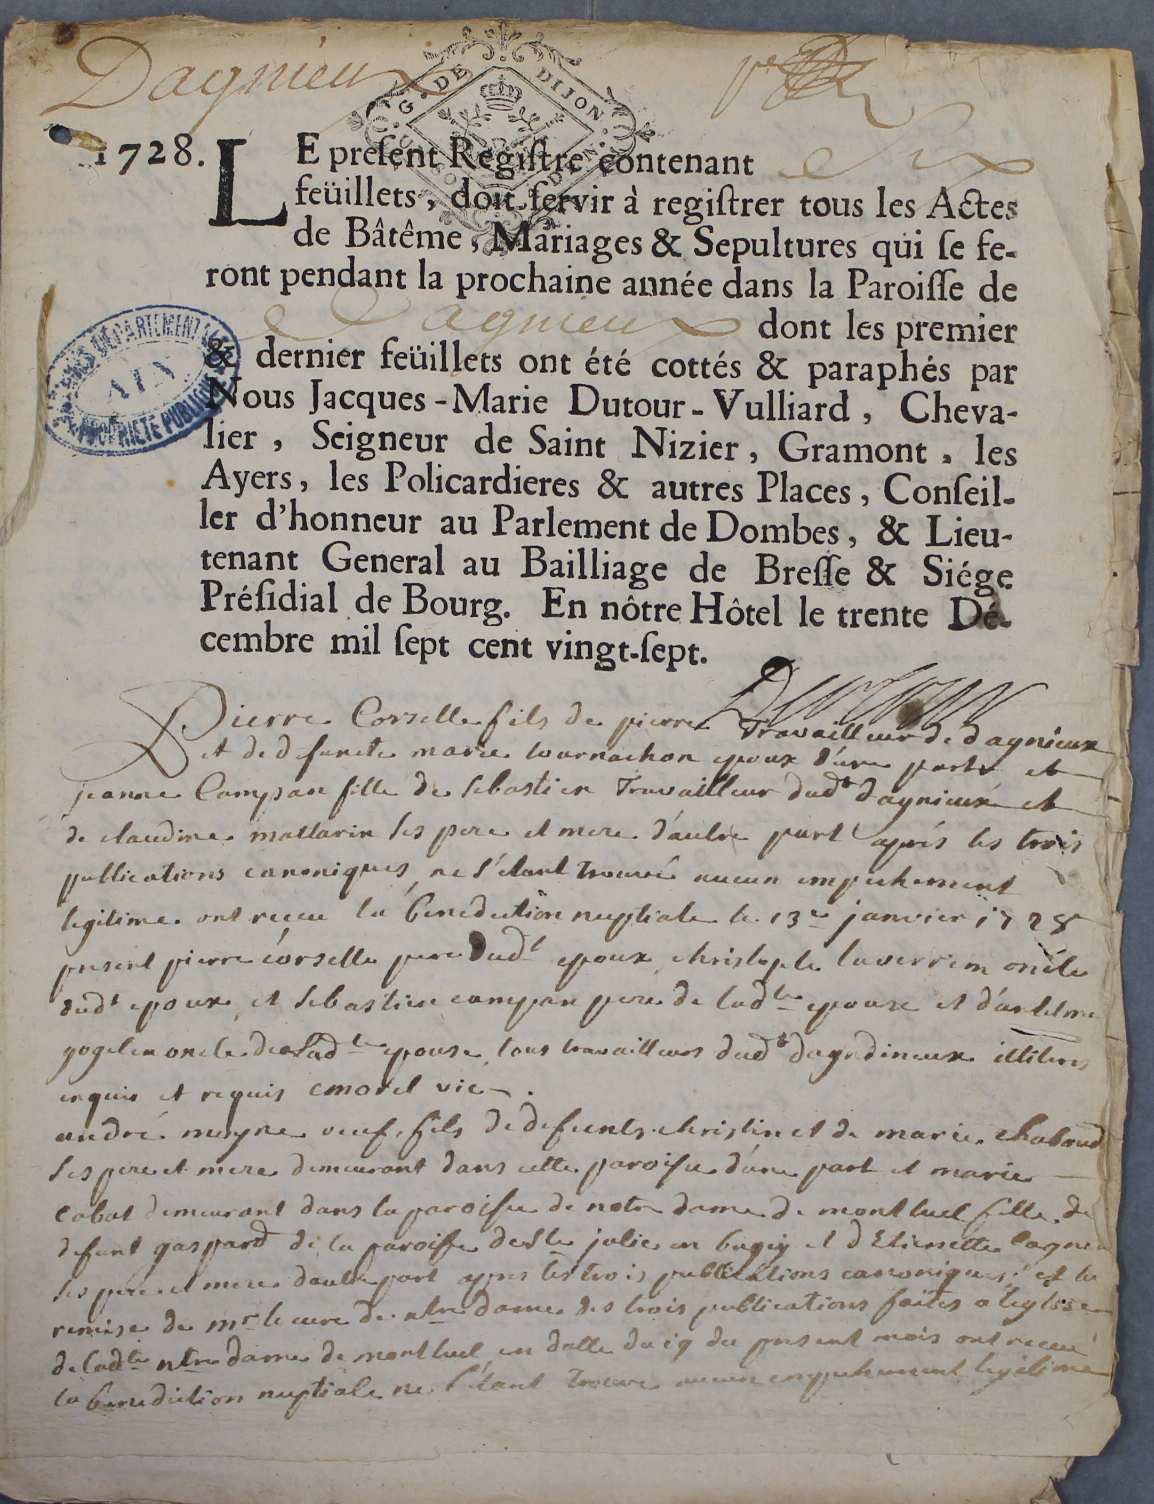 Dagnieu
G. DE DIJON
1728. LE preſent Regiſtre contenant Six
feüillets, doit ſervir à regiſtrer tous les Actes
de Bâtême, Mariages & Sepultures qui ſe fe-
ront pendant la prochaine année dans la Paroiſſe de
Dagnieu dont les premier
& dernier feüillets ont été cottés & paraphés par
Nous Jacques-Marie Dutour-Vulliard, Cheva-
lier, Seigneur de Saint Nizier, Gramont, les
Ayers, les Policardieres & autres Places, Conſeil-
ler d'honneur au Parlement de Dombes, & Lieu-
tenant General au Bailliage de Breſſe & Siége
Préſidial de Bourg. En nôtre Hôtel le trente Dé-
cembre mil ſept cent vingt-ſept.
ARCHIVES DÉPARTEMENTALES
AIN
PROPRIÉTÉ PUBLIQUE
Pierre Corselle fils de pierre Travailleur de dagnieux
et de defuncte marie tournachon epoux d'une part et
jeanne Campan fille de sebastien Travailleur dudt dagnieux et
de claudine mattarin ses pere et mere d'autre part aprés les trois
publications canoniques ne s'étant trouvé aucun empechement
legitime ont receu la benediction nuptiale le 13e janvier 1728
present pierre corselle pere dudt epoux christophe oncle
dudt epoux et sebastien campan pere de ladte epouse et d'anthelme
gogelin oncle de ladte epouse tous travailleurs dudt illiteres
enquis et requis Cmorel vic.
andré moyne veuf fils de defunts christin et de marie chaboud
ses pere et mere demeurant dans cette paroisse d'une part et marie
cabat demeurant dans la paroisse de notre dame de montluel fille de
defunt gaspard de la paroisse de Ste julie en bugey et d'Etiennette
ses pere et mere d'autre part apres les trois publications canoniques et la
remise de mr le curé de ntre dame des trois publications faites a leglise
de ladte ntre dame de montluel en datte du 19 du present mois ont receu
la benediction nuptiale ne s'étant trouvé aucun empechement legitime